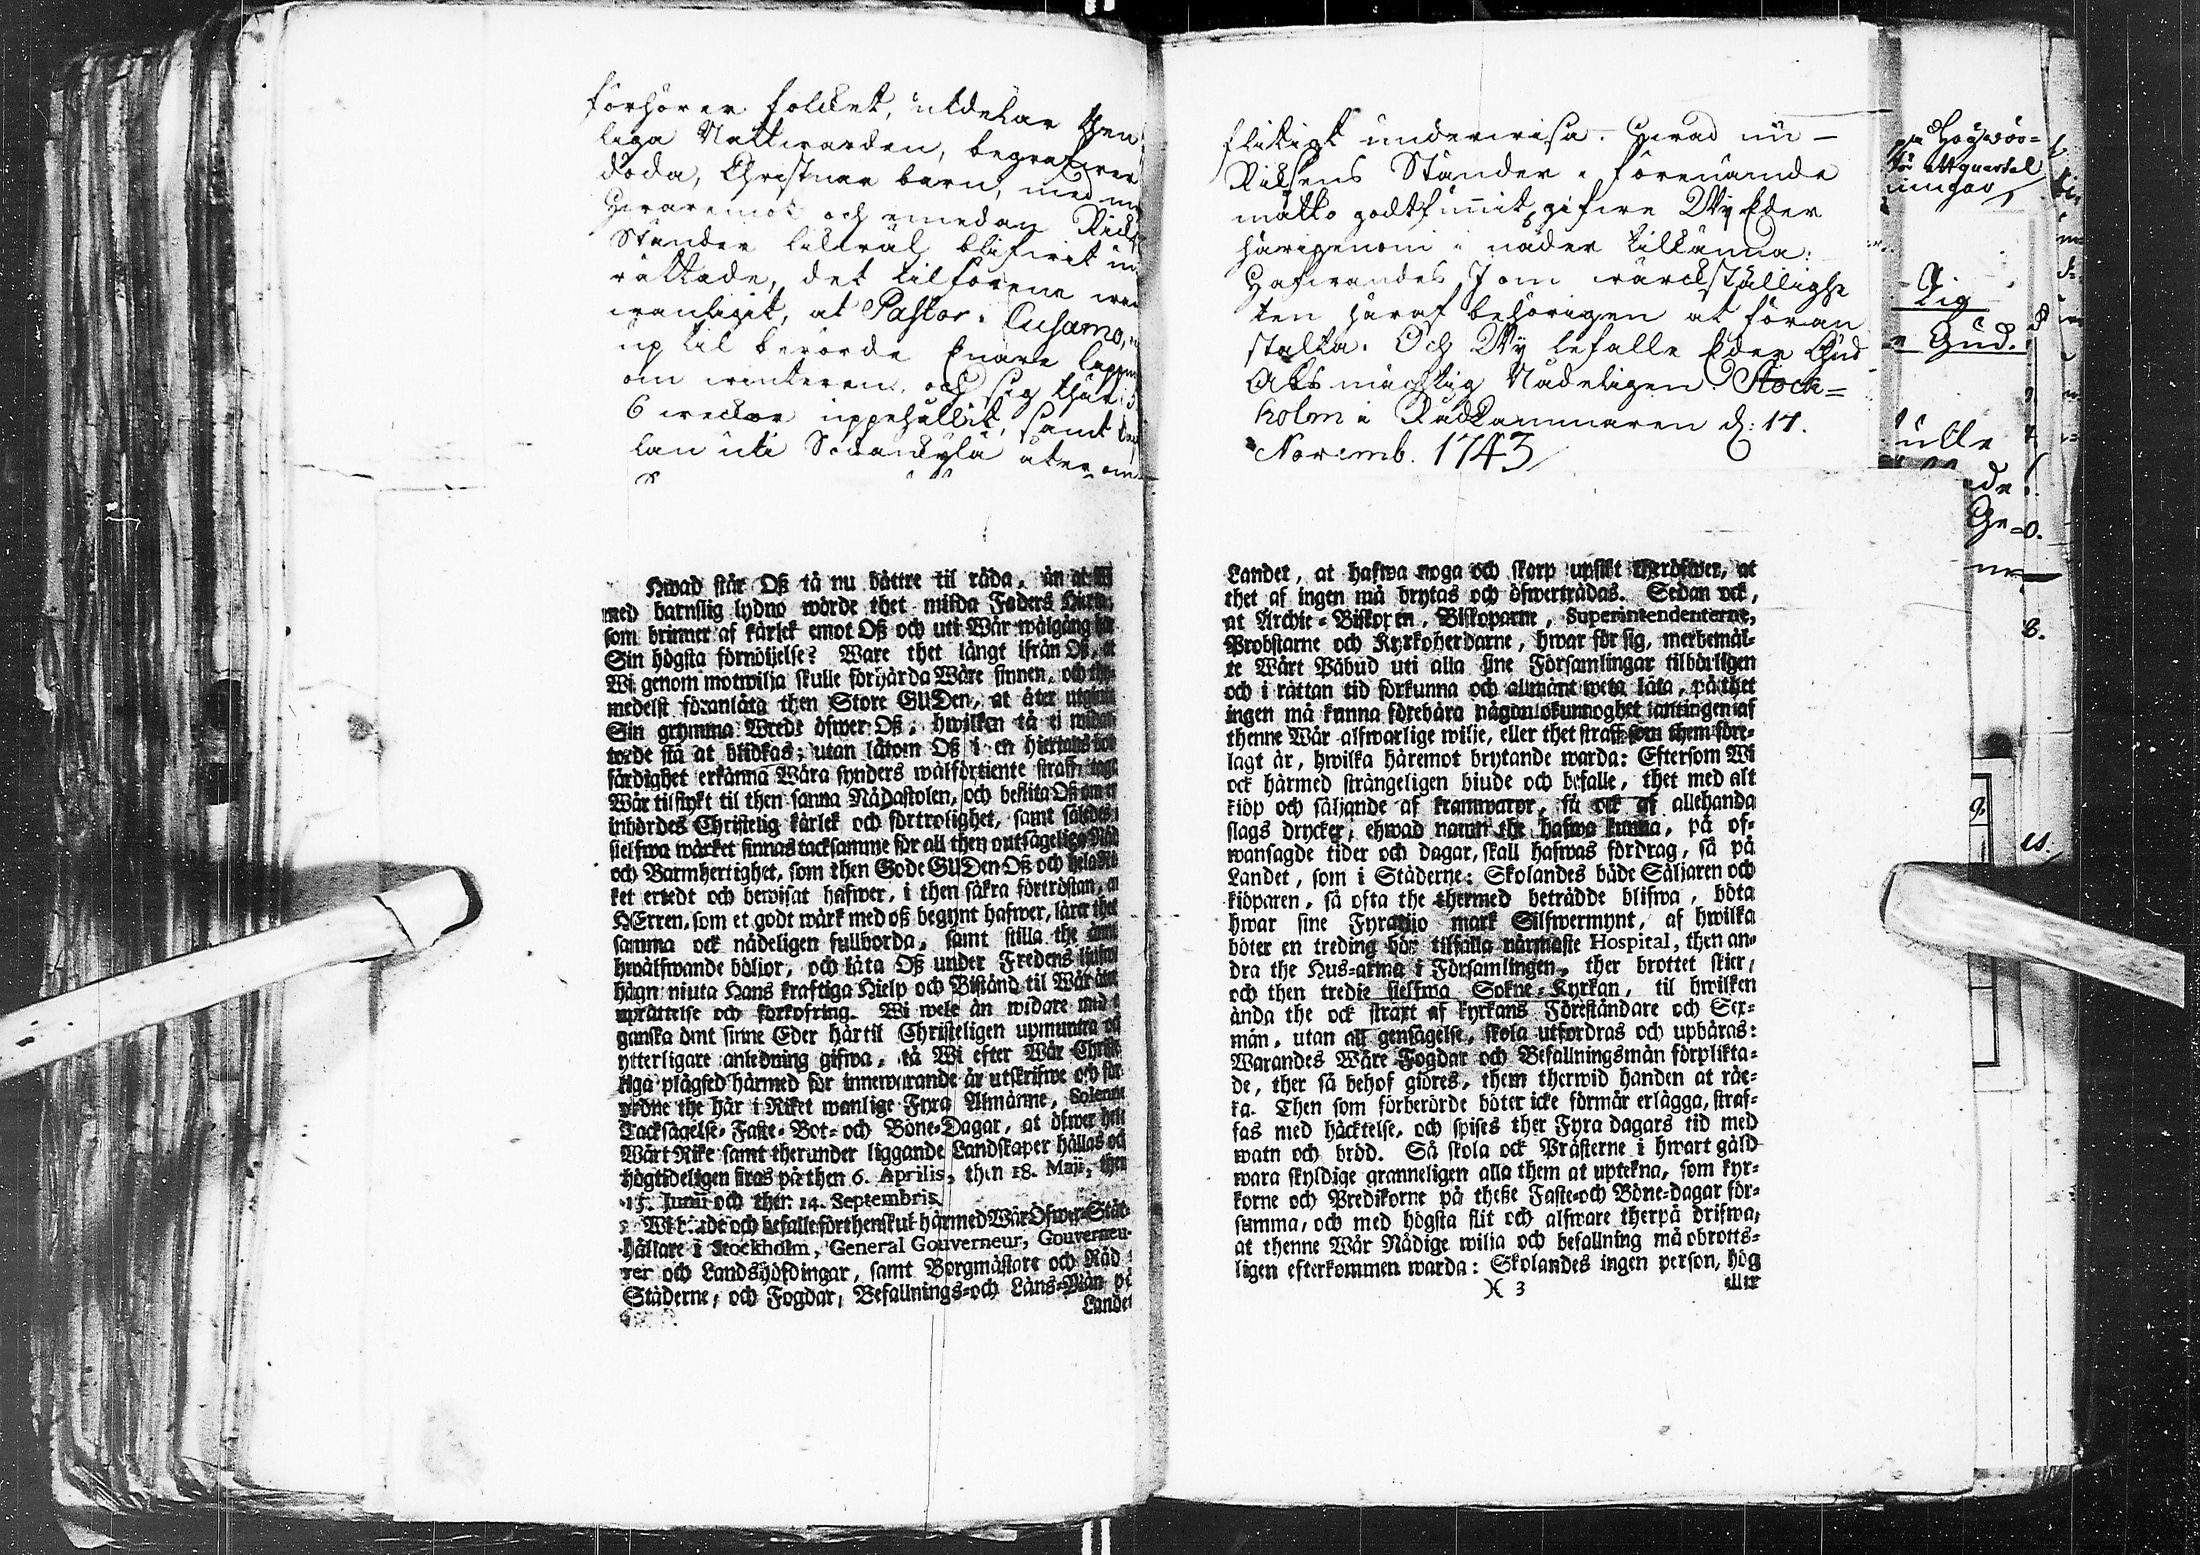 förhörer folcket, utdelar then
liga Nattwarden, begrafwer
döda, Christnar barn, med
Hwaremot och emedan Rick
Ständer likwäl blifwit
rättade, det tilförene
wanligit, at Pastor i Cusamo,
up til berörde Enare Lappm
om winteren, och sig thär 5
6 weckor uppehållit, samt
lan uti Sodankylä åter om
Hwad står Oß tå nu bättre til råda, än at Wi
med barnslig lydno wörde thet milda Faders Hierta,
som brinner af kärlek emot Oß och uti Wår wälgång här
Sin högsta förnöijelse? Ware thet långt ifrån Oß, at
Wi genom motwilja skulle förhärda Wåre sinnen, och ther-
medelst föranlåta then Store GUDen, at åter utgiuta
Sin grymma Wrede öfwer Oß; hwilken tå ei widare
torde stå at blidkas; utan låtom Oß i en hiertans bot-
färdighet erkänna Wåra synders wälförtiente straff, taga
Wår tilflykt til then sanna Nådastolen, och beflita Oß om en
inbördes Christelig kärlek och förtrolighet, samt således i
sielfwa wärket finnas tacksamme för all then outsägeliga Nåd
och Barmhertighet, som then Gode GUDen Oß och hela Ri-
ket ertedt och bewisat hafwer, i then säkra förtröstan, at
HErren, som et godt wärk med oß begynt hafwer, lärer thet
samma ock nådeligen fullborda, samt stilla the ännu
hwälfwande böljor, och låta Oß under Fredens liufwa
hägn niuta Hans kraftiga Hielp och Bistånd til Wår åter
uprättelse och förkofring. Wi wele än widare med et
ganska ömt sinne Eder härtil Christeligen upmuntra och
ytterligare anledning gifwa, tå Wi efter Wår Christe-
liga plägsed härmed för innewarande år utskrifwe och för-
ordne the här i Riket wanlige Fyra Almänne, Solenne
Tacksägelse- Faste- Bot- och Böne-Dagar, at öfwer hele
Wårt Rike samt therunder liggande Landskaper hållas och
högtideligen firas på then 6. Aprilis, then 18. Maji, then
15. Junii och then 14. Septembris.
Wi biude och befalle förthenskul härmed Wår Öfwer-Ståt-
hållare i Stockholm, General Gouverneur, Gouverneu-
rer och Landshöfdingar, samt Borgmästare och Råd i
Städerne, och Fogdar, Befallnings-och Läns-Män på
Landet
flitigt underwisa. Hwad nu
Riksens Ständer i förenämde
måtto godtfunnit, gifwe Wy Eder
härigenom i nåder tilkänna:
Hafwandes I om wärckställighe
ten häraf behörigen at föran
stalta. Och Wy befalle Eder Gud
Alsmächtig Nådeligen. Stock=
holm i Rådkammaren d: 17.
Novemb. 1743
Landet, at hafwa noga och skarp upsikt theröfwer, at
thet af ingen må brytas och öfwerträdas. Sedan ock,
at Archie-Biskopen, Biskoparne, Superintendenterne,
Probstarne och Kyrkoherdarne, hwar för sig, merbemäl-
te Wårt Påbud uti alla sine Församlingar tilbörligen
och i rättan tid förkunna och allmänt weta låta, på thet
ingen må kunna förebära någon okunnoghet antingen af
thenne Wår alfwarlige wilje, eller thet straff som them före-
lagt är, hwilka häremot brytande warda: Eftersom Wi
ock härmed strängeligen biude och befalle, thet med alt
kiöp och säljande af kramwaror, så ock af allehanda
slags drycker, ehwad namn the hafwa kunna, på of-
wansagde tider och dagar, skall hafwas fördrag, så på
Landet, som i Städerne: Skolandes både Säljaren och
kiöparen, så ofta the thermed beträdde blifwa, böta
hwar sine Fyratijo mark Silfwermynt, af hwilka
böter en treding bör tilfalla närmaste Hospital, then an-
dra the Hus-arma i Församlingen, ther brottet skier,
och then tredje sielfwa Sokne-Kyrkan, til hwilken
ända the ock straxt af kyrkans Föreståndare och Sex-
män, utan all gensägelse, skola utfordras och upbäras:
Warandes Wåre Fogdar och Befallningsmän förplikta-
de, ther så behof giöres, them therwid handen at räc-
ka. Then som förberörde böter icke förmår erlägga, straf-
fas med häcktelse, och spises ther Fyra dagars tid med
watn och bröd. Så skola ock Prästerne i hwart gäld
wara skyldige granneligen alla them at uptekna, som kyr-
korne och Predikorne på theße Faste-och Böne-dagar för-
summa, och med högsta flit och alfware therpå drifwa,
at thenne Wår Nådige wilja och befallning må obrotts-
ligen efterkommen warda: Skolandes ingen person, hög
)( 3 eller
Högwör=
ett quartal
lig
Gud.
ulle
de
Ge=